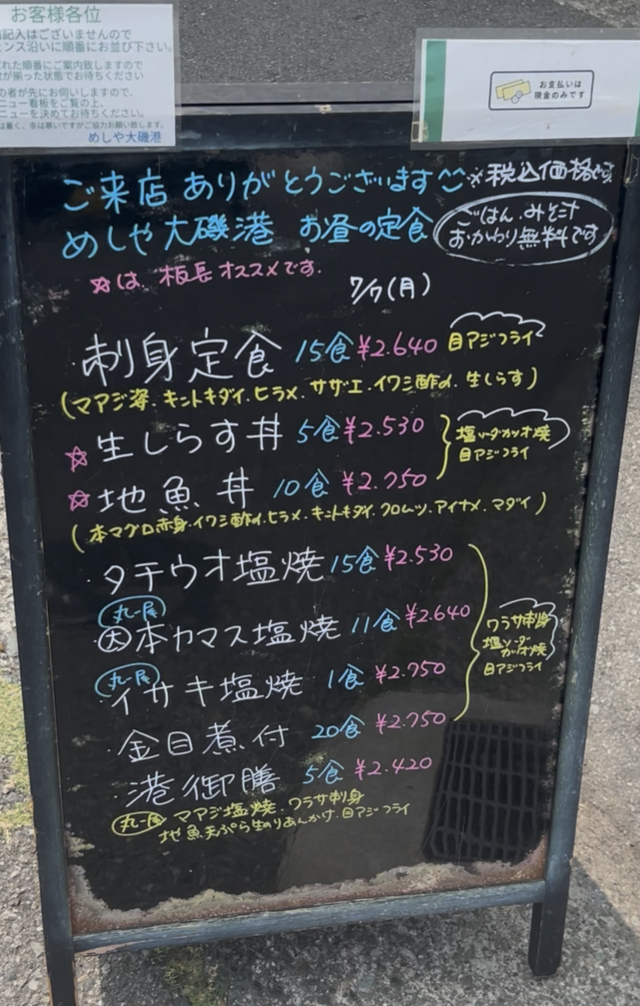 お客様各位
記入はございませんので
ンス沿いに順番にお並び下さい。
れた順番にご案内致しますので
が揃った状態でお待ちください
の者が先にお伺いしますので、
ニュー看板をご覧の上、
ニューを決めてお待ちください。
は暑く、冬は寒いですがご協力お願い致します。
めしや大磯港
お支払いは
現金のみです
ご来店 ありがとうございます
※税込価格です。
めしや大磯港 お昼の定食
ごはん、みそ汁
おかわり無料です
☆は、板長オススメです。
7/7(月)
刺身定食 15食 ¥2.640 目アジフライ
(マアジ姿、キントキダイ、ヒラメ、サザエ、イワシ酢〆、生しらす)
☆生しらす丼 5食 ¥2.530
塩ソーダカツオ焼
目アジフライ
☆地魚丼 10食 ¥2.750
(本マグロ赤身、イワシ酢〆、ヒラメ、キントキダイ、クロムツ、アイナメ、マダイ)
・タチウオ塩焼 15食 ¥2.530
丸一屋
・大本カマス塩焼 11食 ¥2.640
ワラサ刺身
塩ソーダ
カツオ焼
目アジフライ
丸一屋
・イサキ塩焼 1食 ¥2.750
・金目煮付 20食 ¥2.750
・港御膳 5食 ¥2.420
丸一屋 マアジ塩焼、ワラサ刺身
地魚天ぷら生のりあんかけ、目アジフライ